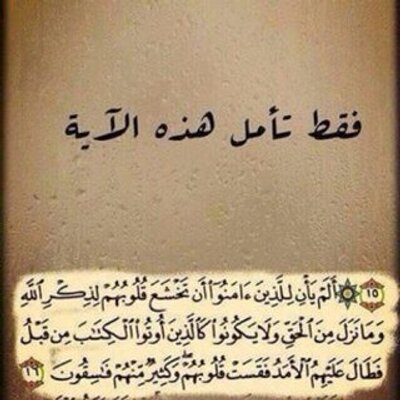 فقط تأمل هذه الآية
١٥ ۞ أَلَمْ يَأْنِ لِلَّذِينَ ءَامَنُوٓا۟ أَن تَخْشَعَ قُلُوبُهُمْ لِذِكْرِ ٱللَّهِ
وَمَا نَزَلَ مِنَ ٱلْحَقِّ وَلَا يَكُونُوا۟ كَٱلَّذِينَ أُوتُوا۟ ٱلْكِتَٰبَ مِن قَبْلُ
فَطَالَ عَلَيْهِمُ ٱلْأَمَدُ فَقَسَتْ قُلُوبُهُمْ وَكَثِيرٌ مِّنْهُمْ فَٰسِقُونَ ١٦